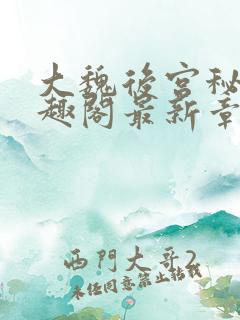 大魏後宮秘
趣閣最新章
西門大哥2
未经同意禁止转载